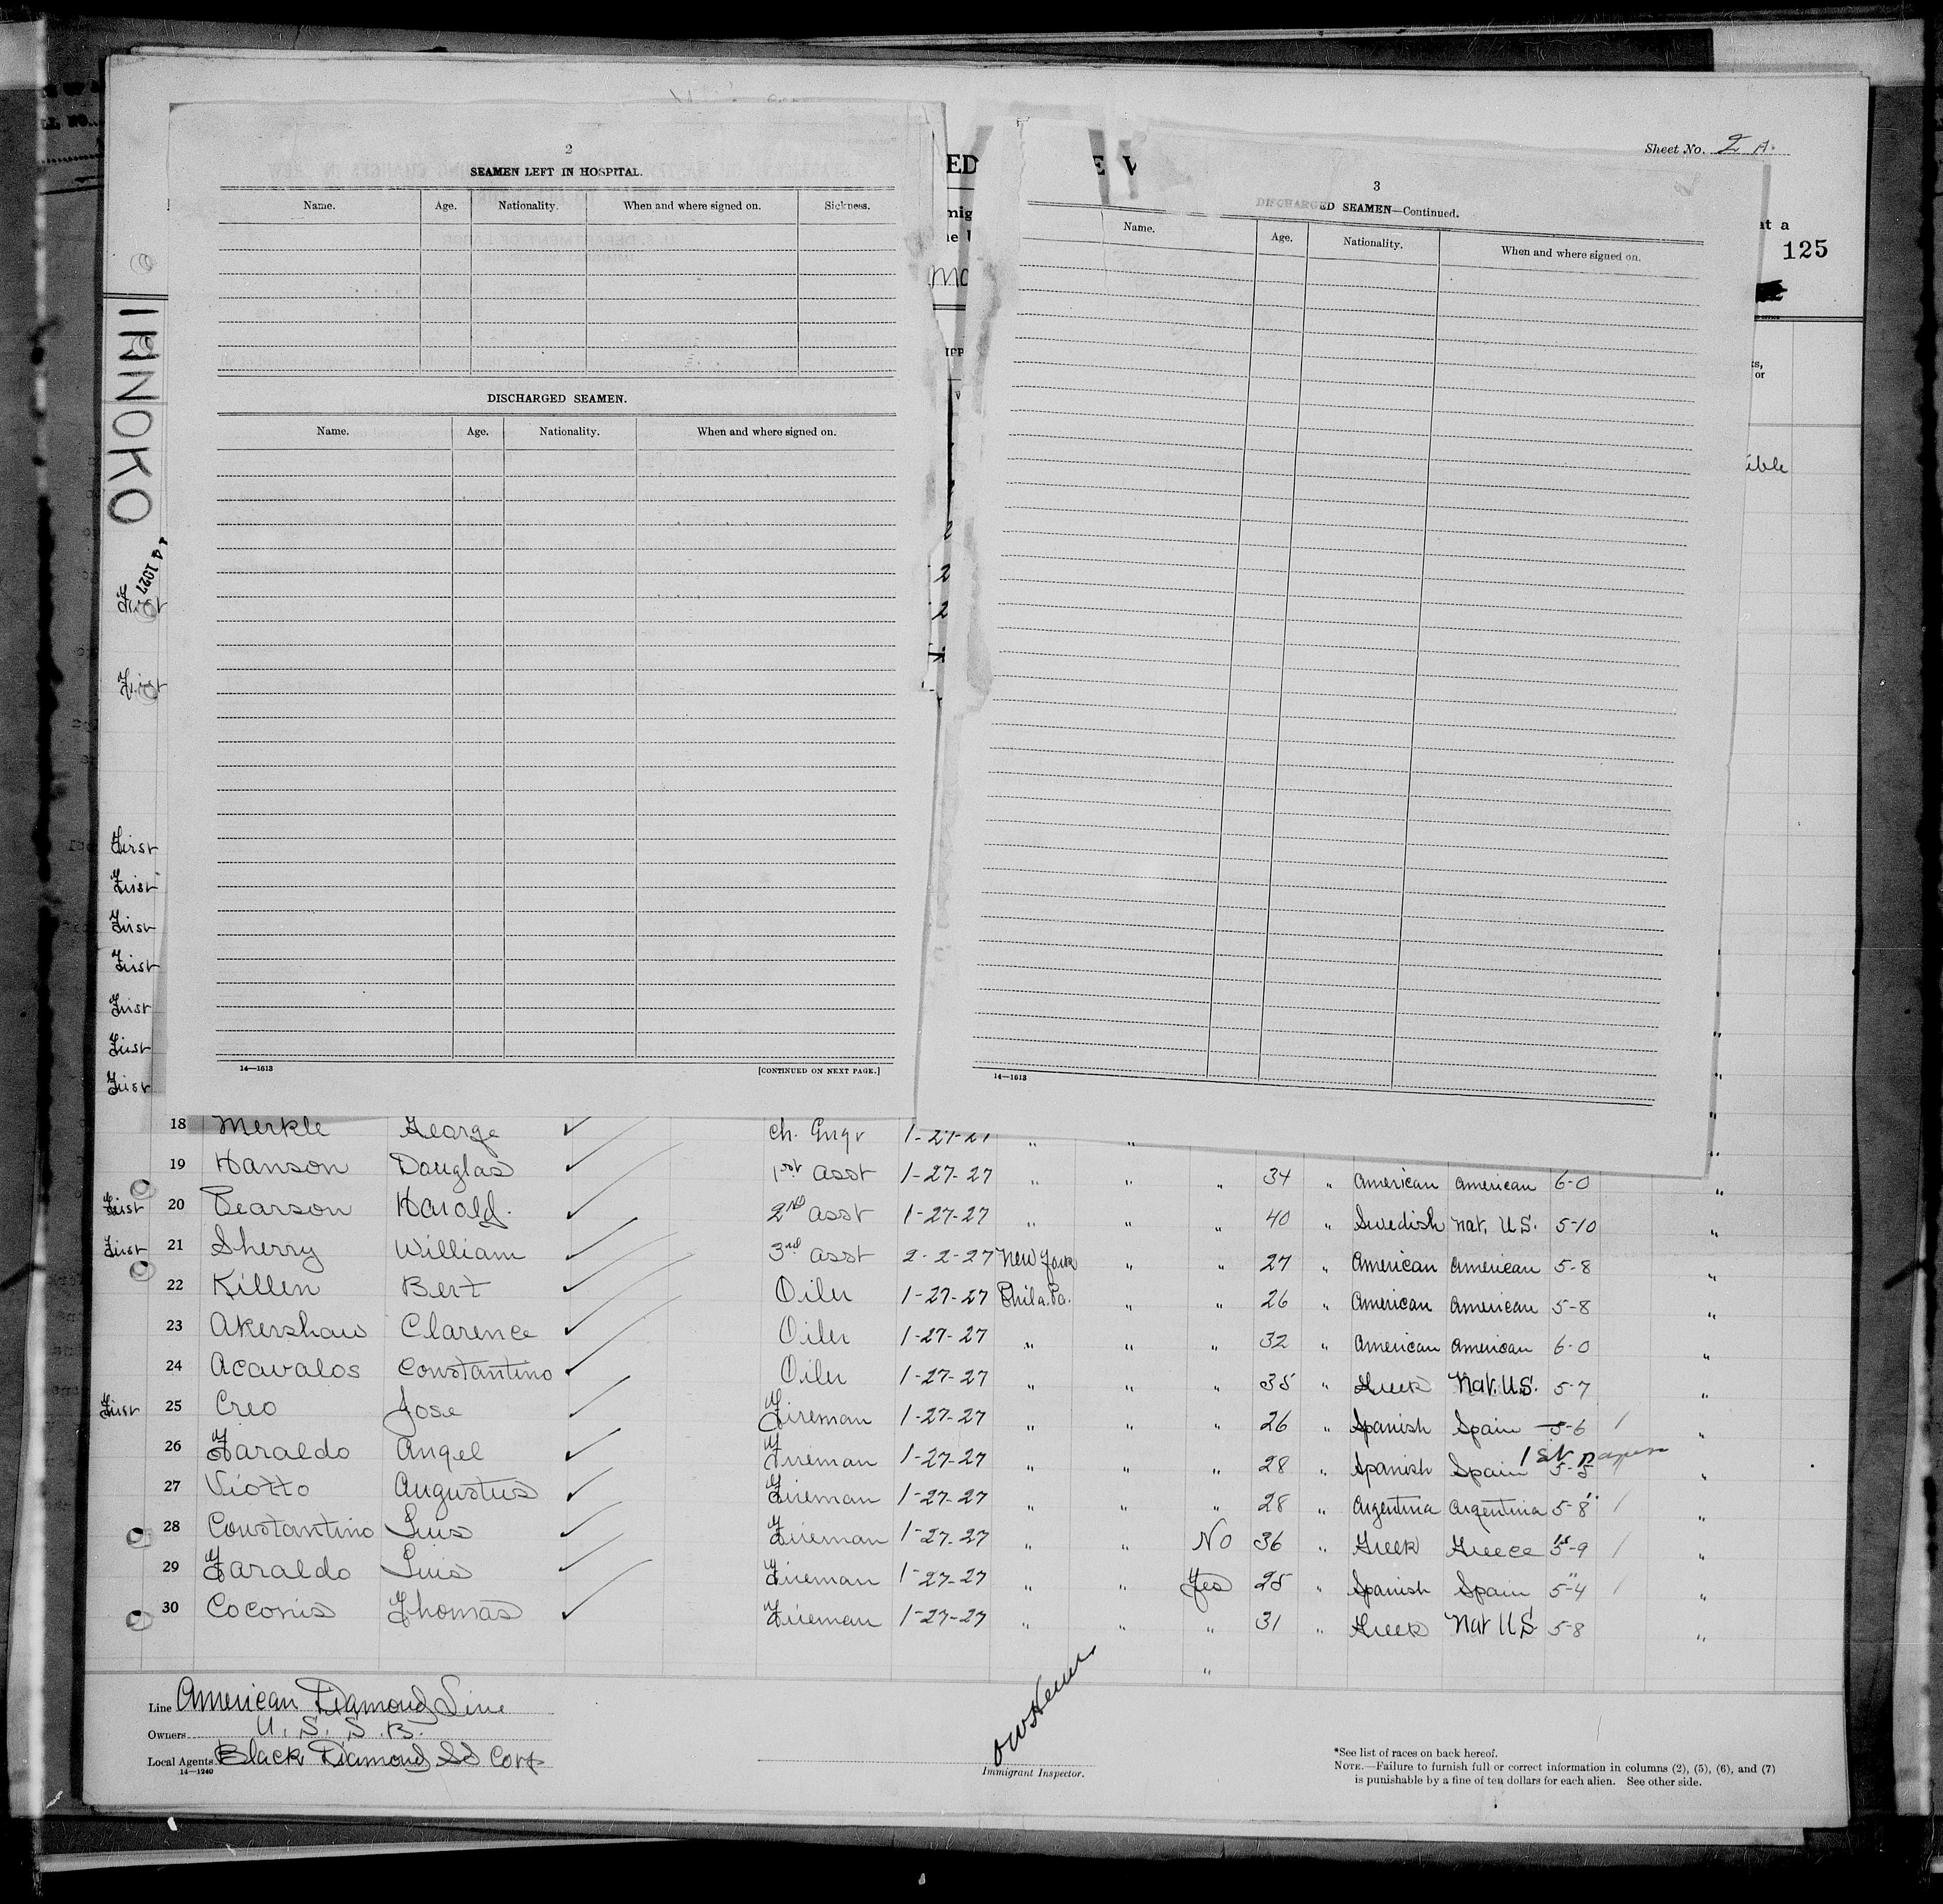 Sheet No. 2 A.
125
INNOKO
2
SEAMEN LEFT IN HOSPITAL.
Name. Age. Nationality. When and where signed on. Sickness.
DISCHARGED SEAMEN.
Name. Age. Nationality. When and where signed on.
14—1613 [CONTINUED ON NEXT PAGE.]
3
DISCHARGED SEAMEN—Continued.
Name. Age. Nationality. When and where signed on.
14—1613
First
First
First
First
First
First
First
First
First
18 Merkle George ✓ Ch. Engr 1-27-27 " "
19 Hanson Douglas ✓ 1st asst 1-27-27 " " " 34 " American American 6-0 "
First 20 Pearson Harold. ✓ 2nd asst 1-27-27 " " " 40 " Swedish nat. U.S. 5-10 "
First 21 Sherry William ✓ 3rd asst 2-2-27 New York " " 27 " American American 5-8 "
22 Killen Bert ✓ Oiler 1-27-27 Phila. Pa. " " 26 " American American 5-8 "
23 Akershaw Clarence ✓ Oiler 1-27-27 " " " 32 " American American 6-0 "
24 Acavalos Constantino ✓ Oiler 1-27-27 " " " 35 " Greek Nat. U.S. 5-7 "
First 25 Creo Jose ✓ Fireman 1-27-27 " " " 26 " Spanish Spain 5-6 / "
1st papers
26 Faraldo Angel ✓ Fireman 1-27-27 " " " 28 " Spanish Spain 5-5 "
27 Viotto Augustus ✓ Fireman 1-27-27 " " " 28 " Argentina Argentina 5-8" / "
28 Constantino Luis ✓ Fireman 1-27-27 " " No 36 " Greek Greece 5-9 / "
29 Faraldo Luis ✓ Fireman 1-27-27 " " Yes 25 " Spanish Spain 5-4 / "
30 Coconis Thomas ✓ Fireman 1-27-27 " " " 31 " Greek Nat U.S 5-8 "
Line American Diamond Line
Owners U. S. S. B.
Local Agents Black Diamond SS Corp
14—1240
Immigrant Inspector.
*See list of races on back hereof.
NOTE.—Failure to furnish full or correct information in columns (2), (5), (6), and (7)
is punishable by a fine of ten dollars for each alien. See other side.